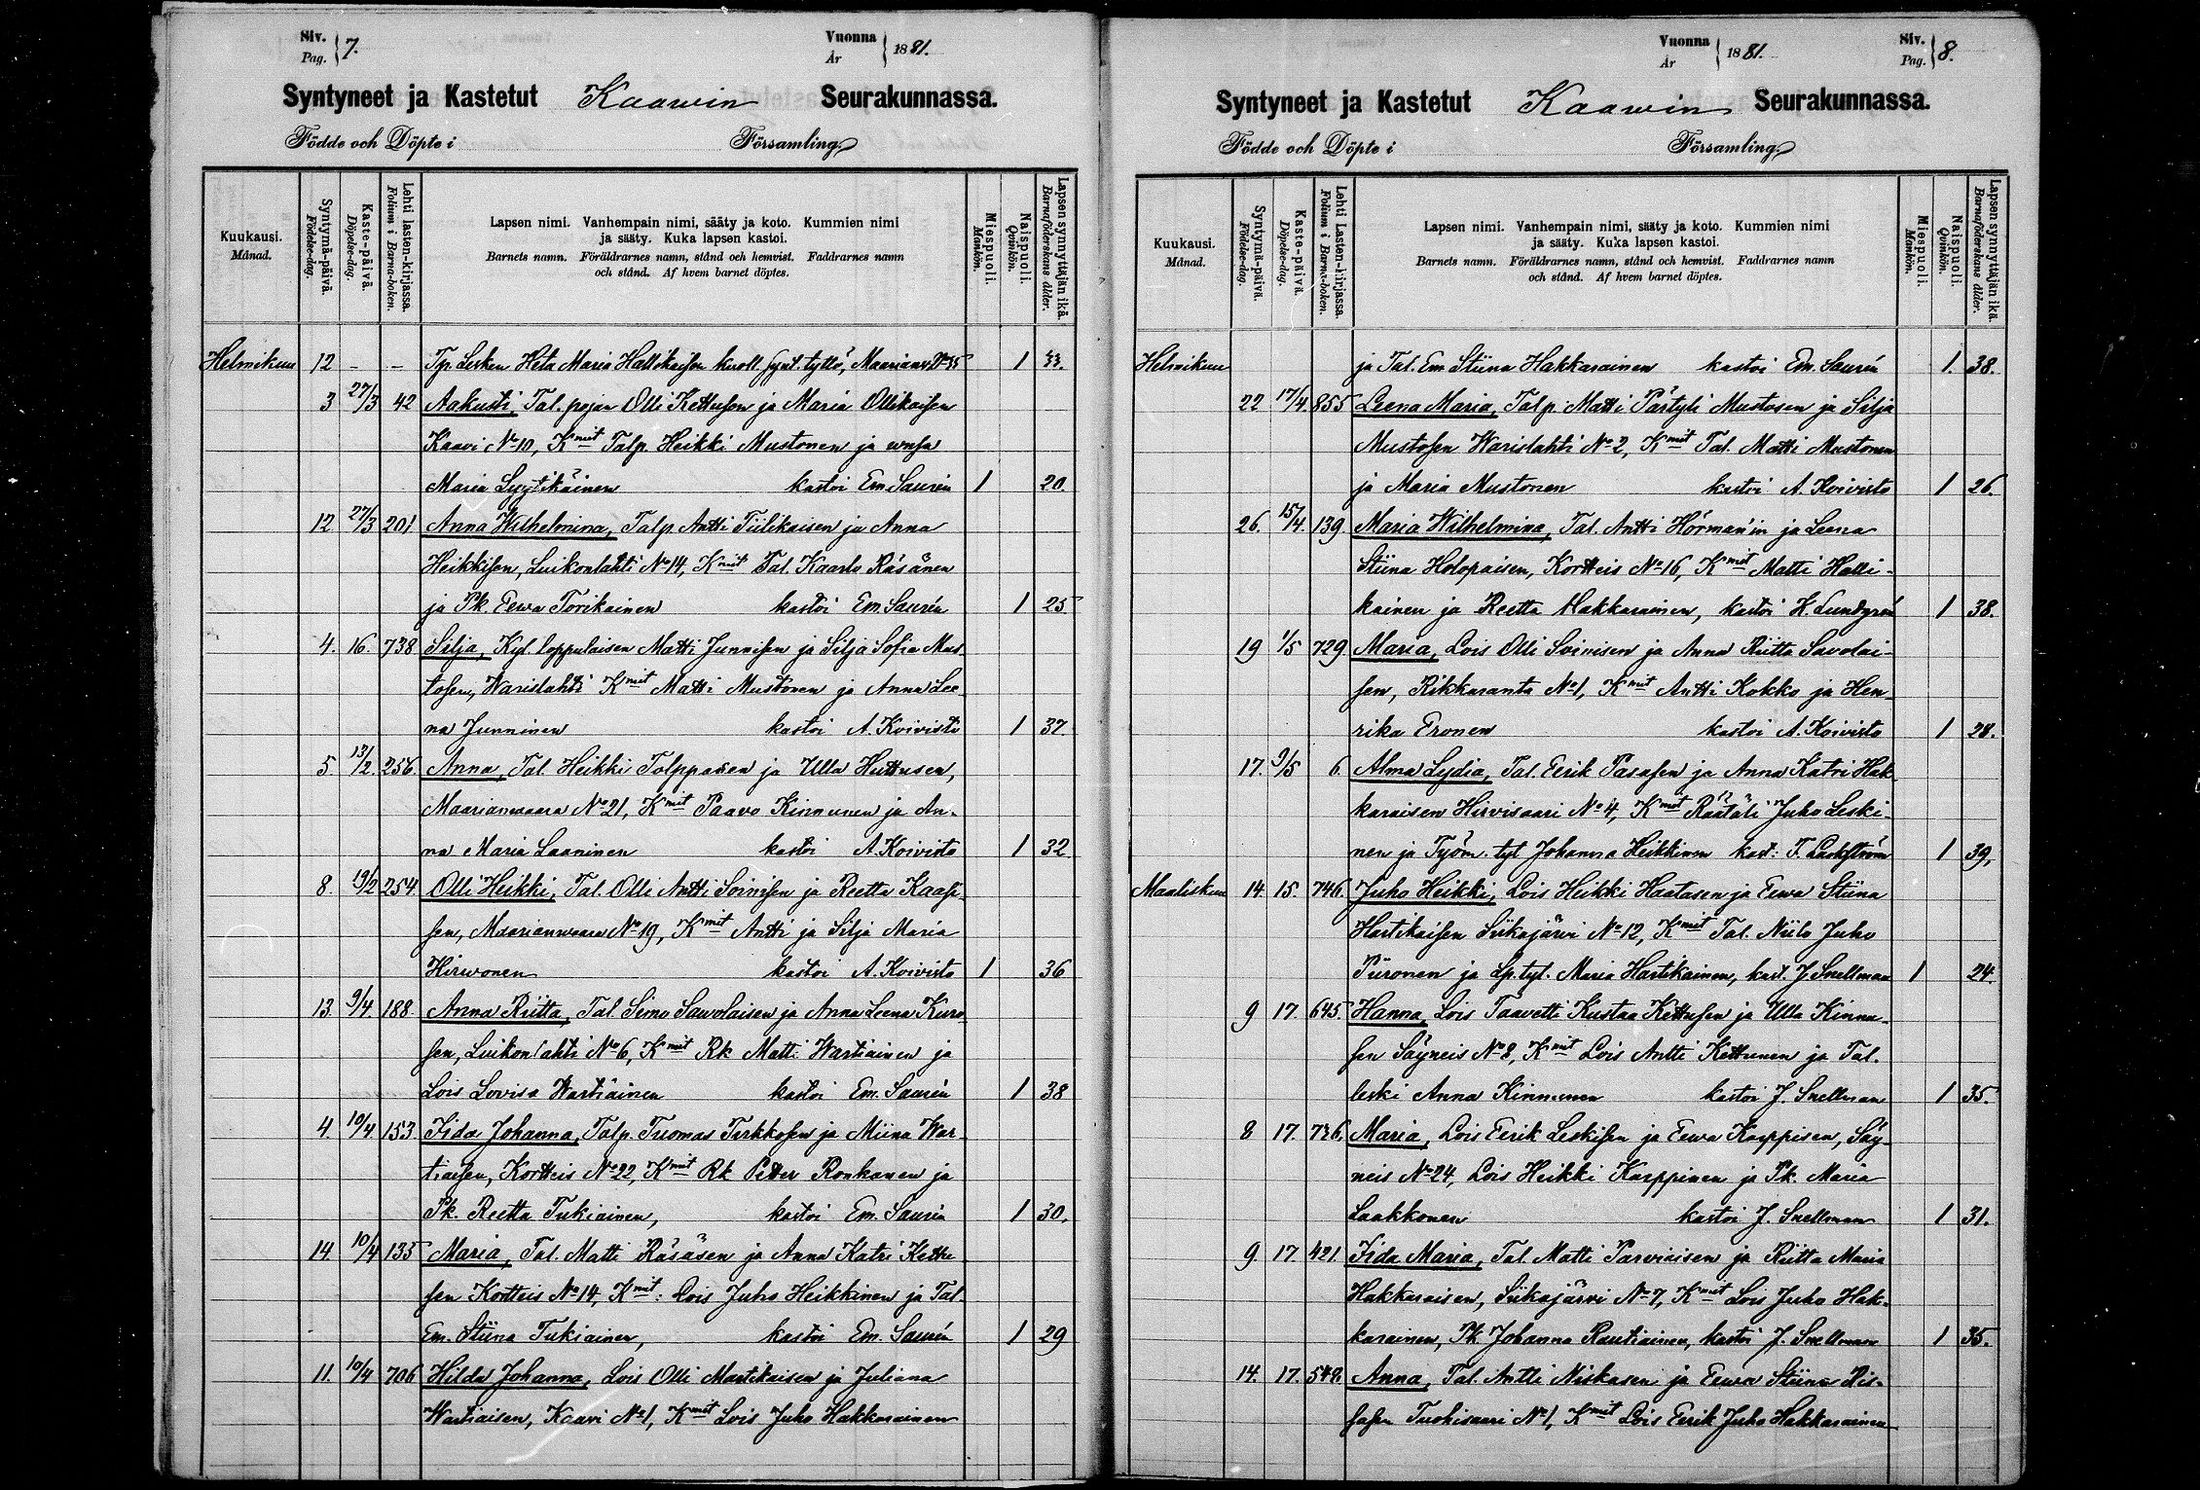 Siv. Pag. 7. Vuonna År 1881.
Syntyneet ja Kastetut Kaawin Seurakunnassa.
Födde och Döpte i Församling
Kuukausi. Månad.
Syntymä-päivä. Födelse-dag.
Kaste-päivä. Döpelse-dag.
Lehti lasten-kirjassa. Folium i Barna-boken.
Lapsen nimi. Vanhempain nimi, sääty ja koto. Kummien nimi
ja sääty. Kuka lapsen kastoi.
Barnets namn. Föräldrarnes namn, stånd och hemvist. Faddrarnes namn
och stånd. Af hvem barnet döptes.
Miespuoli. Mankön.
Naispuoli. Qvinkön.
Lapsen synnyttäjän ikä. Barnaföderskans ålder.
Helmikuu 12 - - Tp. Lesken Heta Maria Hallikaisen kuoll. synt. tyttö, 1 33.
3 27/3 42 Aakusti, Tal. pojan Olli Kettusen ja Maria Ollikaisen
Kaavi No 10, Kmit Talp. Heikki Mustonen ja
Maria Lyytikäinen kastoi Em. Saurén 1 20.
12 27/3 201 Anna Wilhelmina, Talp. Antti Tiilikaisen ja Anna
Heikkisen, Luikonlahti No 14, Kmit Tal. Kaarlo Räsänen
ja Pk. Eewa Torikainen kastoi Em. Saurén 1 25
4. 16. 738 Silja, Kyl. loppulaisen Matti Junnisen ja Silja Sofia Mus
tosen, Warislahti Kmit Matti Mustonen ja Anna Lee
na Junninen kastoi A. Koivisto 1 37.
5. 13/2. 256. Anna, Tal. Heikki Tolppasen ja Ulla Huttusen,
Maarianvaara No 21, Kmit Paavo Kinnunen ja An-
na Maria Laaninen kastoi A. Koivisto 1 32
8. 13/2 254. Olli Heikki, Tal. Olli Antti Soinisen ja Reetta Kaasi
sen, Maarianwaara No 19, Kmit Antti ja Silja Maria
Hirwonen kastoi A. Koivisto 1 36
13. 9/4. 188. Anna Riitta, Tal. Simo Sawolaisen ja Anna Leena Kuro
sen, Luikonlahti No 6, Kmit Rk Matti Wartiainen ja
Lois Lovisa Wartiainen kastoi Em. Saurén 1 38
4. 10/4 153. Iida Johanna, Talp. Tuomas Tirkkosen ja Miina War-
tiaisen, Kortteis No 22, Kmit Rk Petter Ronkanen ja
Pk. Reetta Tukiainen, kastoi Em. Saurén 1 30.
14 10/4 135 Maria, Tal. Matti Räsäsen ja Anna Katri Kettu
sen Kortteis No 14, Kmit: Lois Juho Heikkinen ja Tal
Em. Stiina Tukiainen, kastoi Em. Saurén 1 29
11. 10/4 706 Hilda Johanna, Lois Olli Martikaisen ja Juliana
Wartiaisen, Kaavi No 1, Kmit Lois Juho Hakkarainen
Vuonna År 1881. Siv. Pag. 8.
Syntyneet ja Kastetut Kaawin Seurakunnassa.
Födde och Döpte i Församling
Kuukausi. Månad.
Syntymä-päivä. Födelse-dag.
Kaste-päivä. Döpelse-dag.
Lehti Lasten-kirjassa. Folium i Barna-boken.
Lapsen nimi. Vanhempain nimi, sääty ja koto. Kummien nimi
ja sääty. Kuka lapsen kastoi.
Barnets namn. Föräldrarnes namn, stånd och hemvist. Faddrarnes namn
och stånd. Af hvem barnet döptes.
Miespuoli. Mankön.
Naispuoli. Qvinkön.
Lapsen synnyttäjän ikä. Barnaföderskans ålder.
Helmikuu ja Tal. Em Stiina Hakkarainen kastoi Em. Saurén 1. 38.
22 17/4. 855 Leena Maria, Talp. Matti Pärtyli Mustosen ja Silja
Mustosen Warislahti No 2, Kmit Tal. Matti Mustonen
ja Maria Mustonen kastoi A. Koivisto 1 26.
26. 15/4. 139 Maria Wilhelmina, Tal. Antti Hörman'in ja Leena
Stiina Holopaisen, Kortteis No 16, Kmit Matti Halli-
kainen ja Reetta Hakkarainen, kastoi H. Lundgrén 1 38.
19 1/5 729 Maria, Lois Olli Soinisen ja Anna Riitta Savolai-
sen, Rikkaranta No 1, Kmit Antti Kokko ja Hen-
rika Eronen kastoi A. Koivisto 1 28.
17. 9/5 6. Alma Lydia, Tal. Eerik Pasasen ja Anna Katri Hak-
karaisen Hirvisaari No 4, Kmit Räätäli Juho Leski-
nen ja Työm. tyt Johanna Heikkinen kast: 1 39,
Maaliskuu 14. 15. 746. Juho Heikki, Lois Heikki Haatasen ja Eewa Stiina
Hartikaisen Siikajärvi No 12, Kmit Tal. Niilo Juho
Piironen ja Lp. tyt. Maria Hartikainen, kast. J. Snellman 1 24.
9 17 645. Hanna, Lois Taavetti Kustaa Kettusen ja Ulla Kinnu-
sen Säyneis No 8, Kmit Lois Antti Kettunen ja Tal.
leski Anna Kinnunen kastoi J. Snellman 1 35.
8 17. 736. Maria, Lois Eerik Leskisen ja Eewa Karppisen, Säy-
neis No 24, Lois Heikki Karppinen ja Pk. Maria
Laakkonen kastoi J. Snellman 1 31.
9. 17. 421. Iida Maria, Tal. Matti Parviaisen ja Riitta Maria
Hakkaraisen, Siikajärvi No 7, Kmit Lois Juho Hak-
karainen, Pk. Johanna Rautiainen, kastoi J. Snellman 1 35.
14. 17. 548. Anna, Tal. Antti Niskasen ja Eewa Stiina Ris-
sasen Tuohisaari No 1, Kmit Lois Eerik Juho Hakkarainen